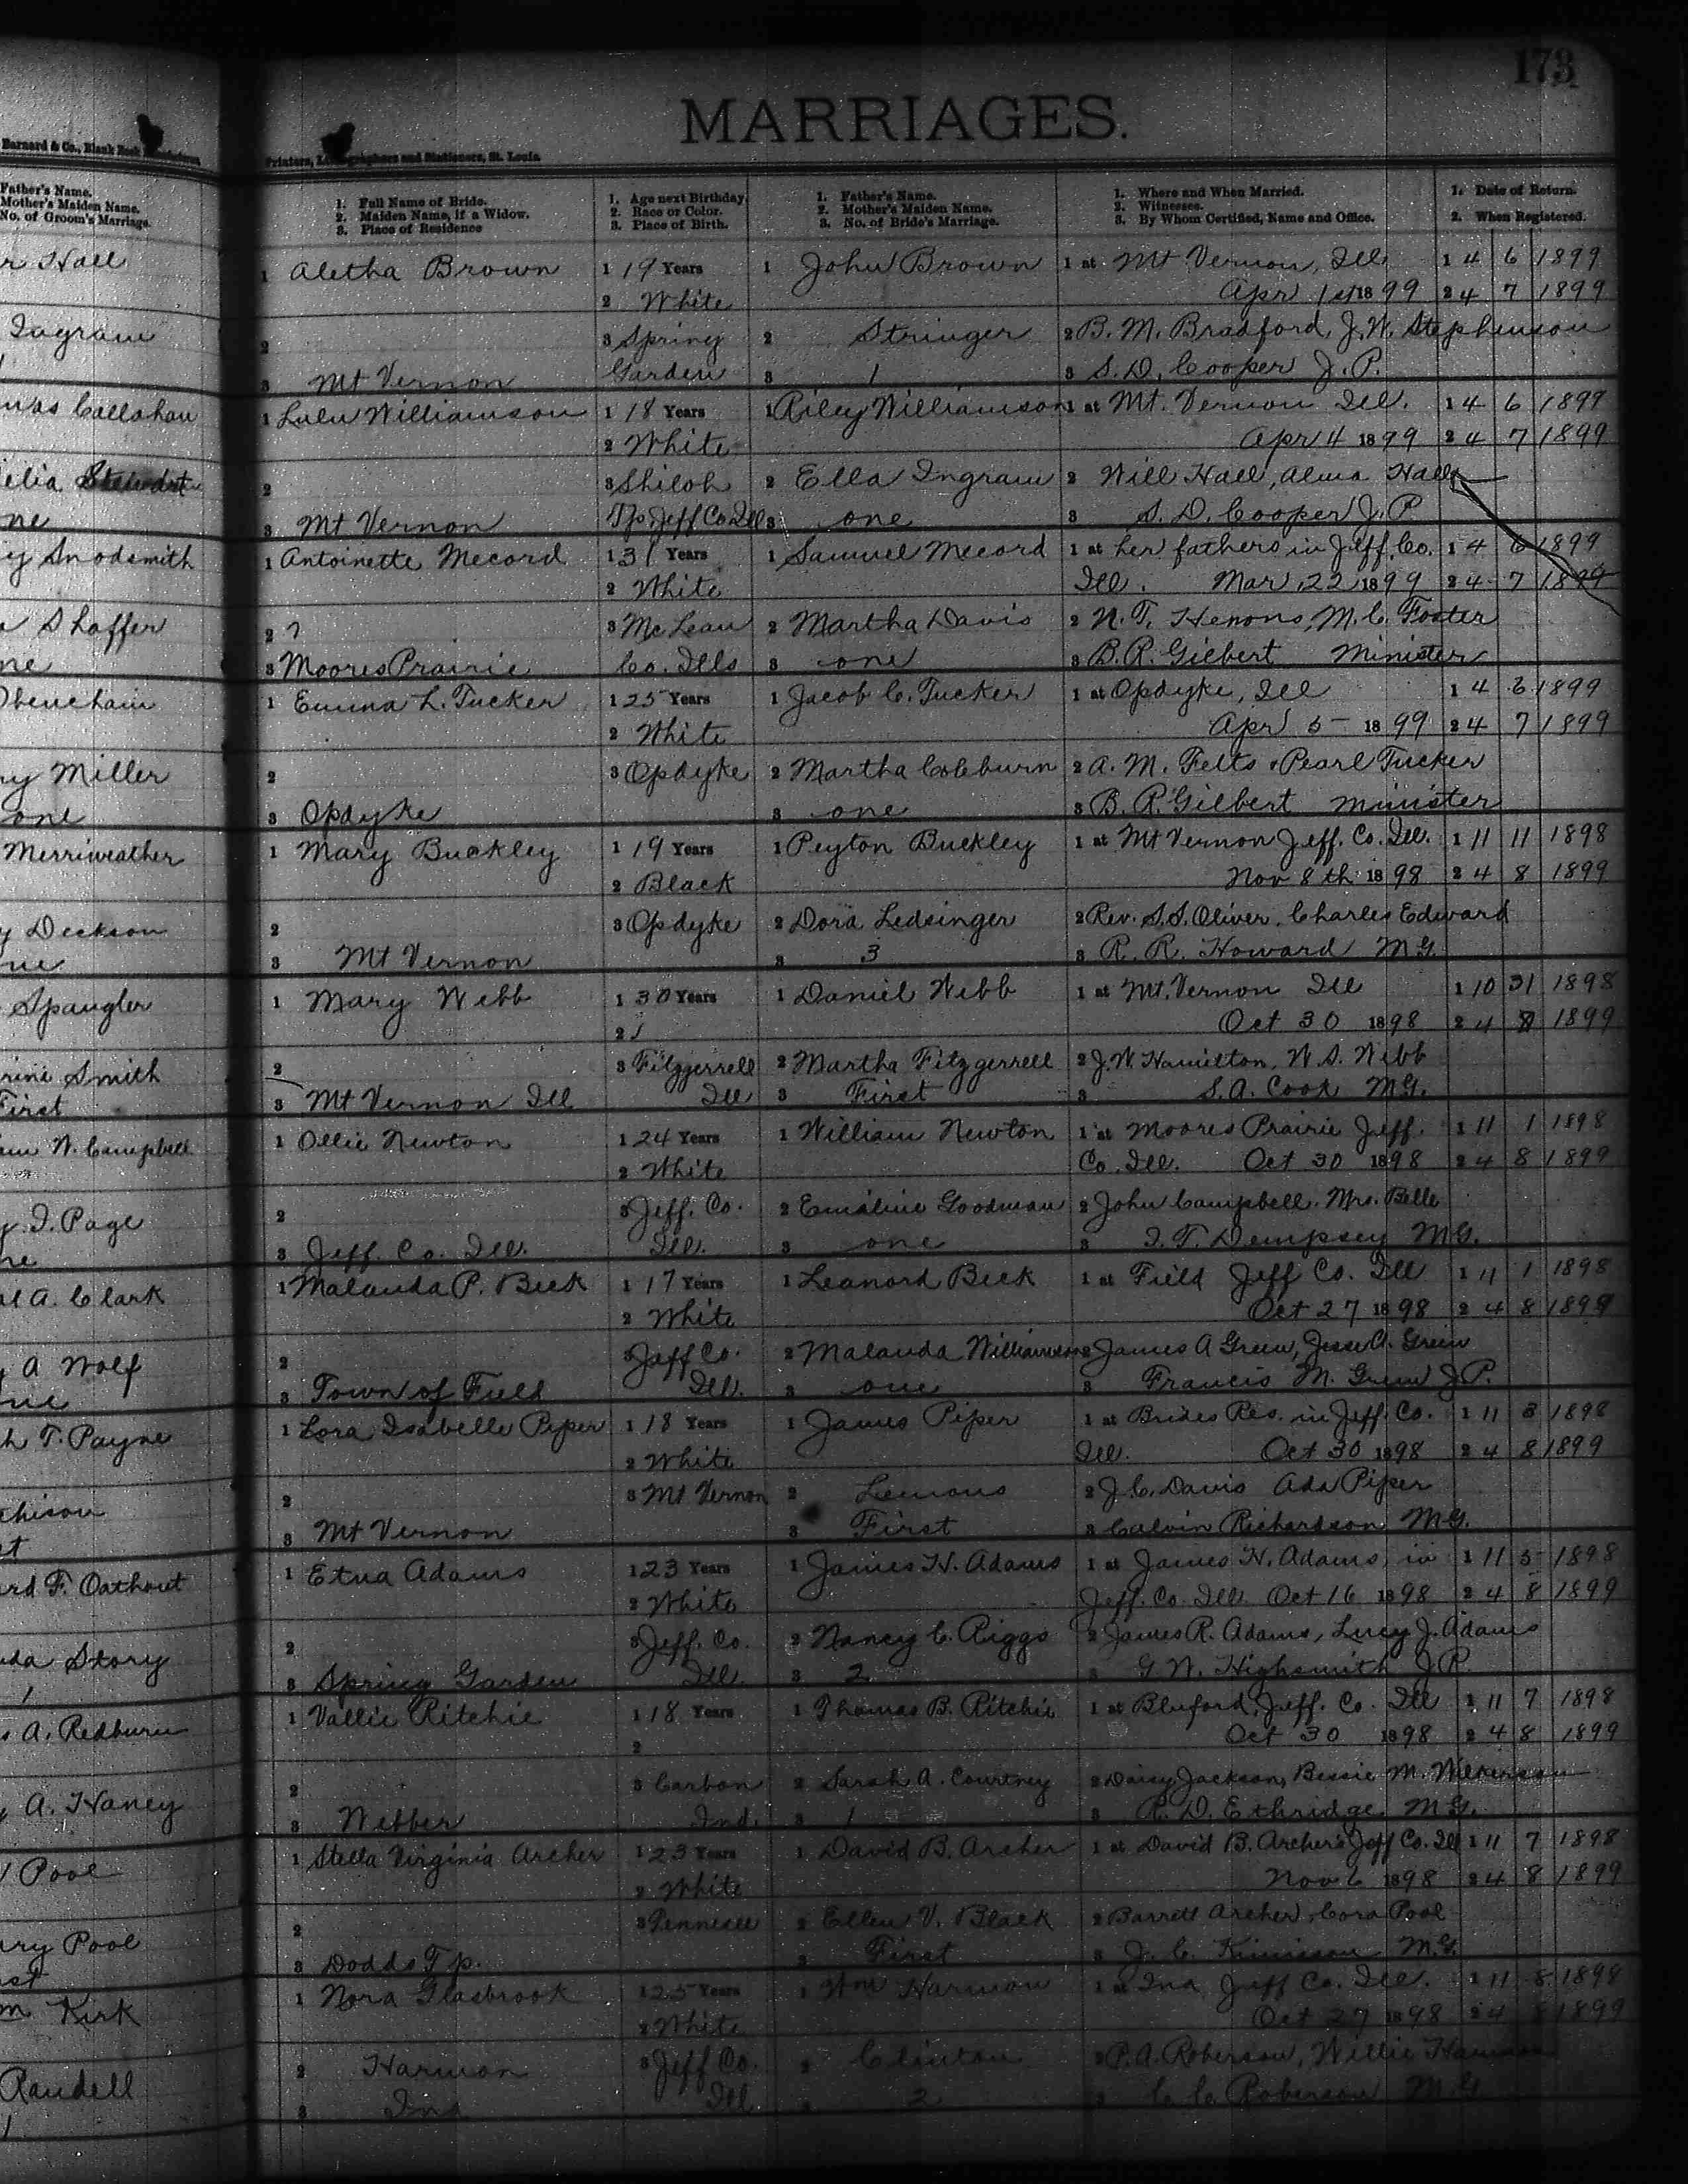 173
MARRIAGES.
Barnard & Co., Blank Book
Printers, Lithographers and Stationers, St. Louis.
Father's Name.
Mother's Maiden Name.
No. of Groom's Marriage.
1. Full Name of Bride.
2. Maiden Name, if a Widow.
3. Place of Residence
1. Age next Birthday
2. Race or Color.
3. Place of Birth.
1. Father's Name.
2. Mother's Maiden Name.
3. No. of Bride's Marriage.
1. Where and When Married.
2. Witnesses.
3. By Whom Certified, Name and Office.
1. Date of Return.
2. When Registered.
r Hall 1 Aletha Brown 1 19 Years 1 John Brown 1 at Mt Vernon, Ill 1 4 6 1899
2 White Apr 1st 1899 2 4 7 1899
Ingram 2 3 Spring 2 Stringer 2 B. M. Bradford, J. W. Stephenson
3 Mt Vernon Garden 3 1 3 S. D. Cooper J. P.
mas Callahan 1 Lulu Williamson 1 18 Years 1 Riley Williamson 1 at Mt. Vernon Ill. 1 4 6 1899
2 White Apr 4 1899 2 4 7 1899
elia 2 3 Shiloh 2 Ella Ingram 2 Will Hall, Alma Hall
ne 3 Mt Vernon Tp. Jeff Co Ill 3 one 3 S. D. Cooper J. P.
y Snodsmith 1 Antoinette Mecord 1 31 Years 1 Samuel Mecord 1 at her fathers in Jeff. Co. 1 4 6 1899
2 White Ill. Mar. 22 1899 2 4 7 1899
a Shaffer 2 ? 3 McLean 2 Martha Davis 2 N. T. Henons, M. C. Foster
ne 3 Moores Prairie Co. Ills 3 one 3 B. R. Gilbert Minister
Obenchain 1 Emma L. Tucker 1 25 Years 1 Jacob C. Tucker 1 at Opdyke, Ill 1 4 6 1899
2 White Apr 5 1899 2 4 7 1899
ry Miller 2 3 Opdyke 2 Martha Coleburn 2 A. M. Felts Pearl Tucker
one 3 Opdyke 3 one 3 B. R. Gilbert minister
Merriweather 1 Mary Buckley 1 19 Years 1 Peyton Buckley 1 at Mt Vernon Jeff. Co. Ill. 1 11 11 1898
2 Black Nov 8th 1898 2 4 8 1899
y Deckson 2 3 Opdyke 2 Dora Ledsinger 2 Rev. S. S. Oliver, Charles Edward
ne 3 Mt Vernon 3 3 3 R. R. Howard M G.
Spangler 1 Mary Webb 1 30 Years 1 Daniel Webb 1 at Mt. Vernon Ill 1 10 31 1898
2 1 Oct 30 1898 2 4 8 1899
rine Smith 2 3 Fitzgerrell 2 Martha Fitzgerrell 2 J. W. Hamilton, W. S. Webb
First 3 Mt Vernon Ill Ill 3 First 3 S. A. Cook M G.
am W. Campbell 1 Ollie Newton 1 24 Years 1 William Newton 1 at Moores Prairie Jeff. 1 11 1 1898
2 White Co. Ill. Oct 30 1898 2 4 8 1899
y. I. Page 2 3 Jeff. Co. 2 Emaline Goodman 2 John Campbell. Mrs. Belle
ne 3 Jeff. Co. Ill. Ill. 3 one 3 I. T. Dempsey M G.
el A. Clark 1 Malanda P. Beck 1 17 Years 1 Leanord Beck 1 at Field Jeff Co. Ill 1 11 1 1898
2 White Oct 27 1898 2 4 8 1899
A Wolf 2 3 Jeff Co. 2 Malanda Williamson 2 James A Green, Jesse A. Green
ne 3 Town of Field Ill. 3 one 3 Francis M. Green J P.
h T. Payne 1 Lora Isabelle Piper 1 18 Years 1 James Piper 1 at Brides Res. in Jeff. Co. 1 11 3 1898
2 White Ill. Oct 30 1898 2 4 8 1899
chison 2 3 Mt Vernon 2 Lemons 2 J. C. Davis Ada Piper
st 3 Mt Vernon 3 First 3 Calvin Richardson M G.
ard F. Oathout 1 Etna Adams 1 23 Years 1 James H. Adams 1 at James H. Adams, in 1 11 5 1898
2 White Jeff. Co. Ill. Oct 16 1898 2 4 8 1899
da Story 2 3 Jeff. Co. 2 Nancy C. Riggs 2 James R. Adams, Lucy J. Adams
1 3 Spring Garden Ill. 3 2 3 G W. Highsmith J. P.
s A. Redburn 1 Vallie Ritchie 1 18 Years 1 Thomas B. Ritchie 1 at Bluford, Jeff. Co. Ill 1 11 7 1898
2 Oct 30 1898 2 4 8 1899
y A. Haney 2 3 Carbon 2 Sarah A. Courtney 2 Daisy Jackson, Bessie M. Wilkerson
3 Webber Ind. 3 1 3 R. D. Ethridge M G.
Pool 1 Stella Virginia Archer 1 23 Years 1 David B. Archer 1 at David B. Archer's Jeff Co. Ill 1 11 7 1898
2 White Nov 6 1898 2 4 8 1899
ary Pool 2 3 Tennessee 2 Ellen V. Black 2 Barrett Archer, Cora Pool
st 3 Dodds Tp. 3 First 3 J. C. Kinison M. G.
m Kirk 1 Nora Glasbrook 1 25 Years 1 Wm Harmon 1 at Ina Jeff Co. Ill. 1 11 8 1898
2 White Oct 27 1898 2 4 8 1899
Randell 2 Harmon 3 Jeff Co. 2 Clinton 2 P. A. Roberson, Willie Harmon
1 3 Ina Ill 3 2 3 C. C. Roberson M G